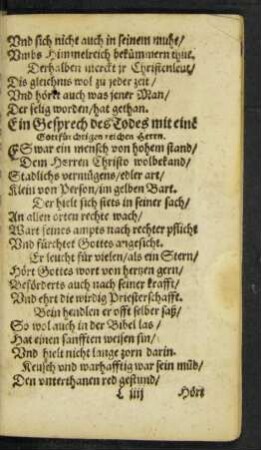 Vnd sich nicht auch in seinem muht/
Vmbs Himmelreich bekümmern thut.
Derhalben merckt jr Christenleut/
Dis gleichnus wol zu jeder zeit/
Vnd hört auch was jener Man/
Der selig worden/ hat gethan.
Ein Gesprech des Todes mit eine
Gottfürchtigen reichen Herrn.
ES war ein mensch von hohem stand/
Dem Herren Christo wolbekand/
Stadlichs vermügens/ edler art/
Klein von Person/ im gelben Bart.
Der hielt sich stets in seiner sach/
An allen orten rechte wach/
Wart seines ampts nach rechter pflicht
Vnd fürchtet Gottes angesicht.
Er leucht für vielen/ als ein Stern/
Hört Gottes wort von hertzen gern/
Beförderts auch nach seiner krafft/
Vnd ehrt die wirdig Priesterschafft.
Bein hendlen er offt selber saß/
So wol auch in der Bibel las/
Hat einen sanfften weisen sin/
Vnd hielt nicht lange zorn darin.
Keusch vnd warhafftig war sein müd/
Den vnterthanen red gestund/
L iiij Hört